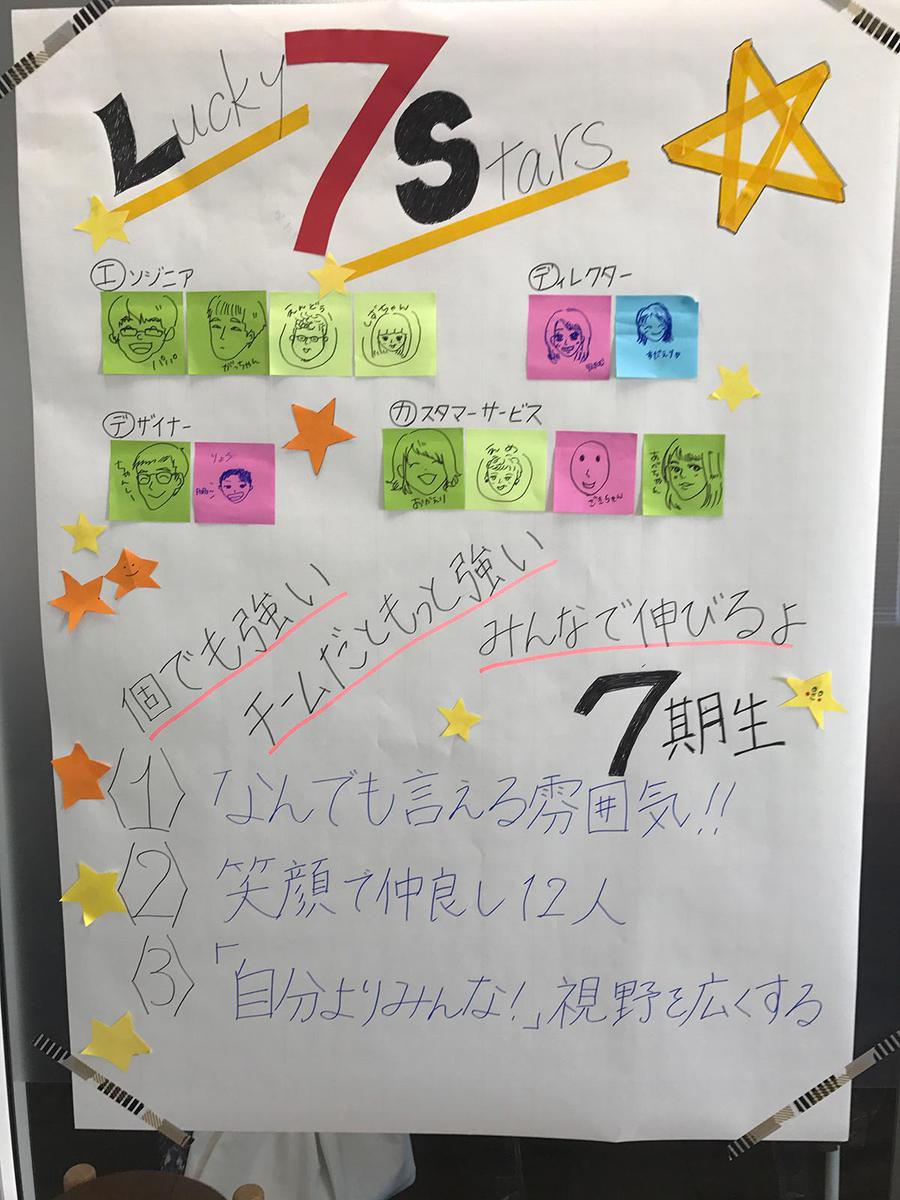 Lucky 7 Stars
エンジニア
ディレクター
パパ
がっちゃん
えんどう
しばちゃん
デザイナー
カスタマーサービス
ちゃんし
りょう
おかえり
ひめ
ごまちゃん
あかちゃん
個でも強い
チームだともっと強い
みんなで伸びるよ
7期生
〈1〉 「なんでも言える雰囲気!!
〈2〉 笑顔で仲良し12人
〈3〉 「「自分よりみんな!」視野を広くする